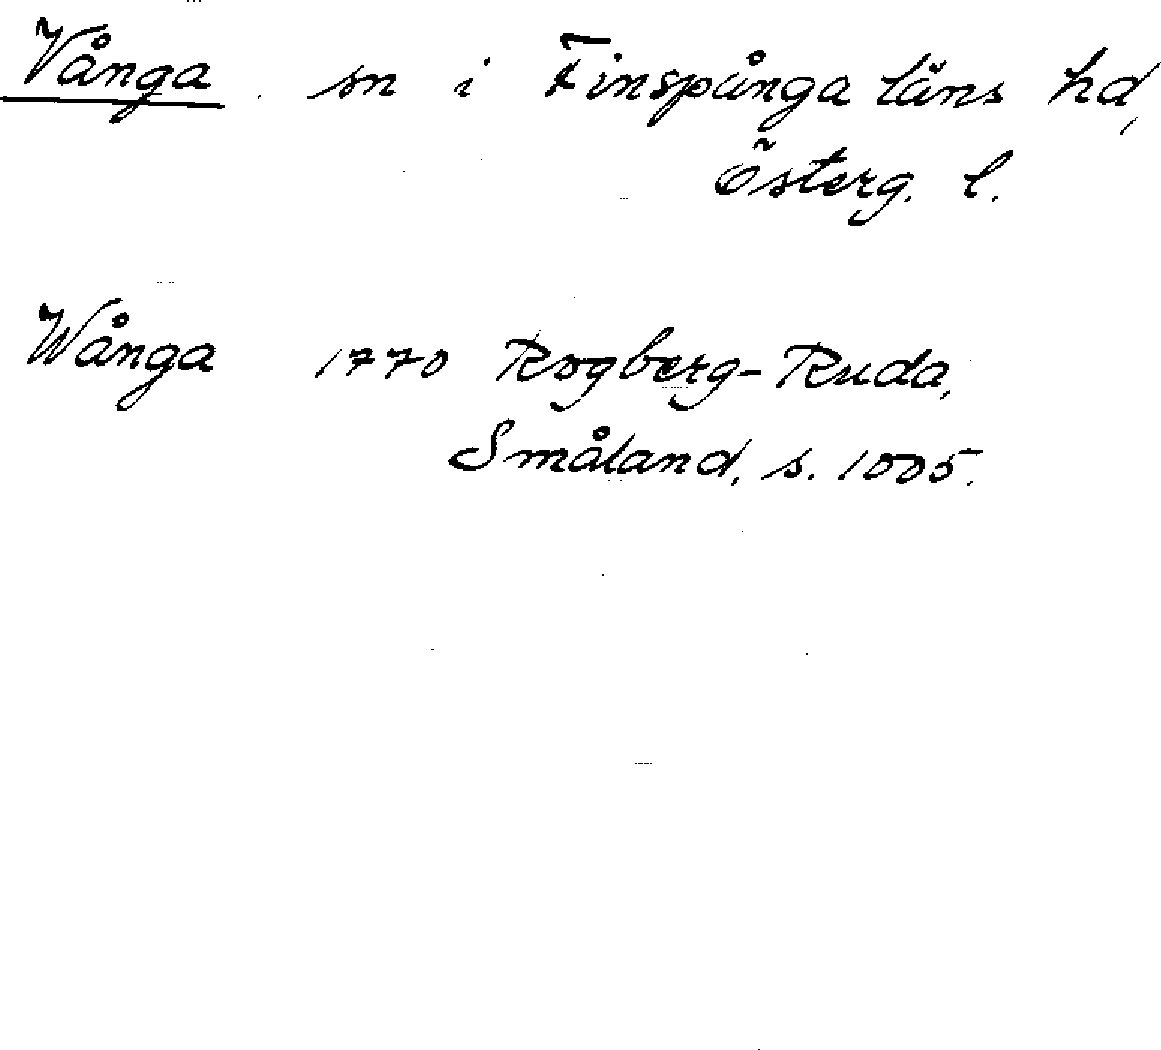 Vånga sn i Finspånga läns hd,
Österg. l.
Wånga 1770 Rogberg-Ruda,
Småland, s. 1005.